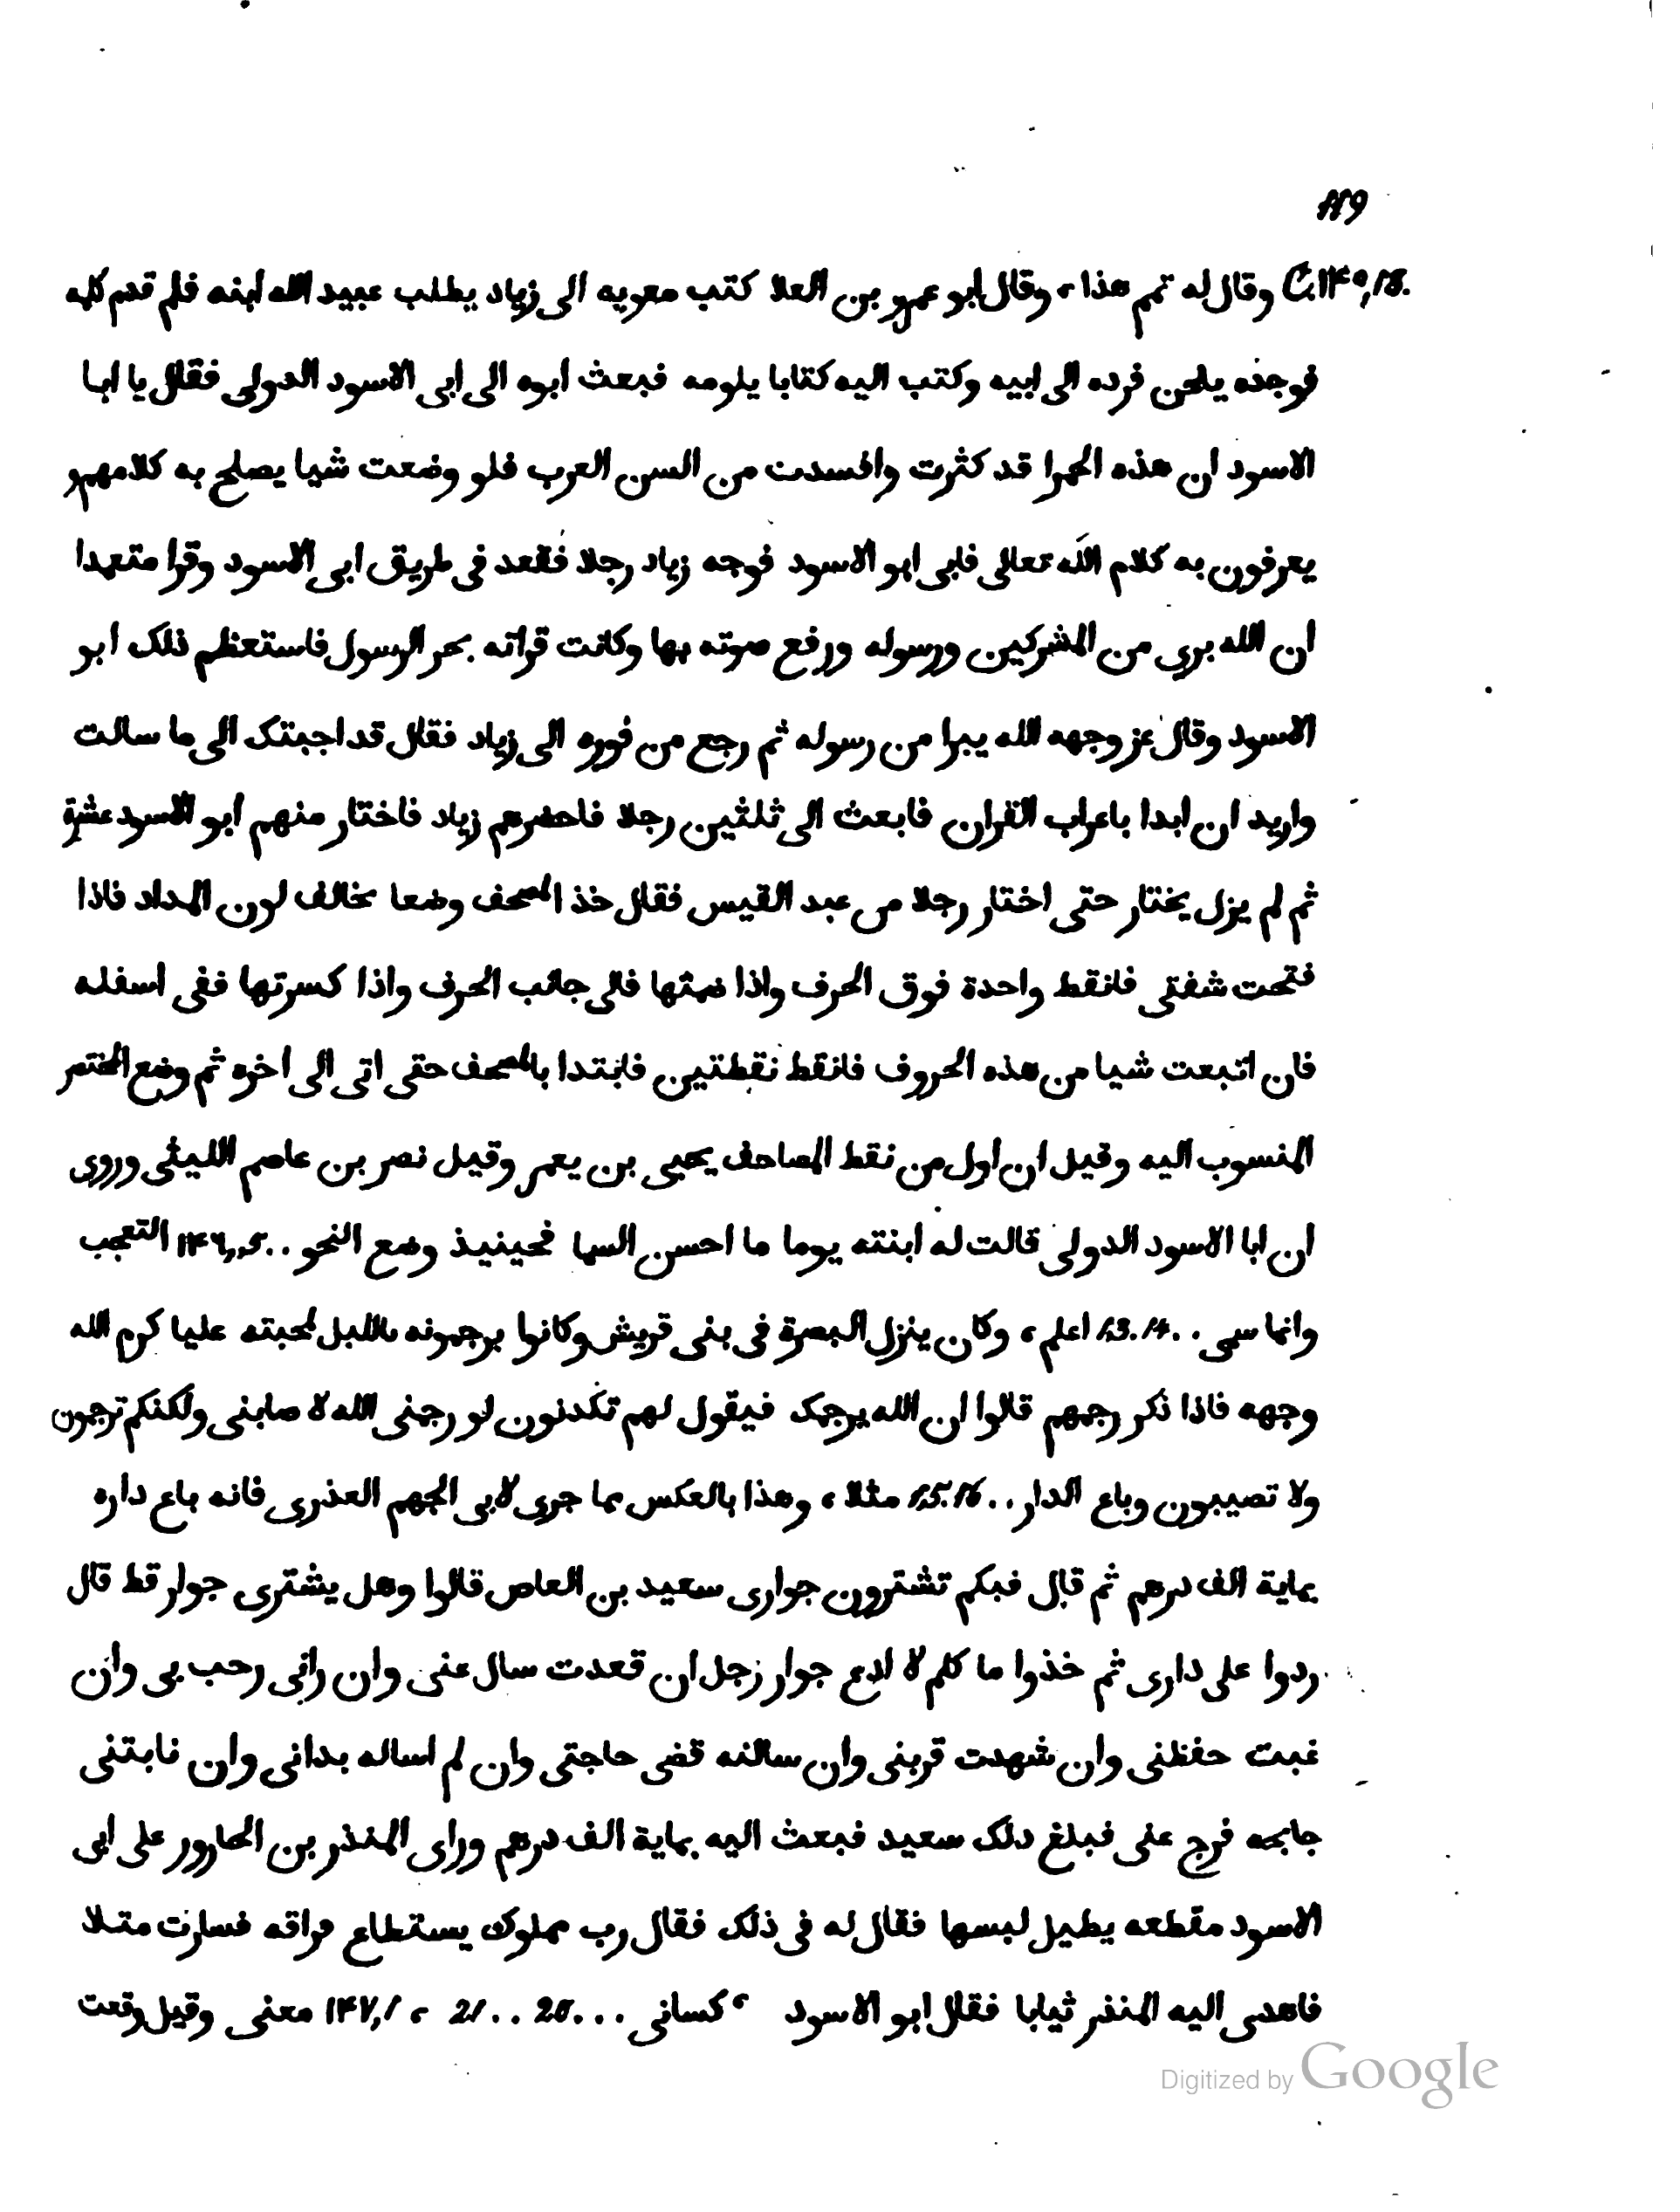 119
C. ۱۴۵,18. وقال له تمم هذا ، وقال ابو عمرو بن العلا كتب معويه الى زياد يطلب عبيد الله ابنه فلم قدم كلمه
فوجده يلحن فرده الى ابيه وكتب اليه كتابا يلومه فبعث ابوه الى ابى الاسود الدولى فقال يا ابا
الاسود ان هذه الحمرا قد كثرت وافسدت من السن العرب فلو وضعت شيا يصلح به كلامهم و
يعرفون به كلام الله تعالى فابى ابو الاسود فوجه زياد رجلا فقعد فى طريق ابى الاسود وقرا متعمدا
ان الله برى من المشركين ورسوله ورفع صوته بها وكانت قراته بجر الرسول فاستعظم ذلك ابو
الاسود وقال عز وجهه الله يبرا من رسوله ثم رجع من فوره الى زياد فقال قد اجبتك الى ما سالت
واريد ان ابدا باعراب القران فابعث الى ثلثين رجلا فاحضرهم زياد فاختار منهم ابو الاسود عشرة
ثم لم يزل يختار حتى اختار رجلا من عبد القيس فقال خذ المصحف وضعا يخالف لون المداد فاذا
فتحت شفتى فانقط واحدة فوق الحرف واذا ضمتها فالى جانب الحرف واذا كسرتها ففى اسفله
فان اتبعت شيا من هذه الحروف فانقط نقطتين فابتدا بالمصحف حتى اتى الى اخره ثم وضع المختصر
المنسوب اليه وقيل ان اول من نقط المصاحف يحيى بن يعمر وقيل نصر بن عاصم الليثى وروى
ان ابا الاسود الدولى قالت له ابنته يوما ما احسن السما فحينيذ وضع النحو ..۱۴۶,,5 التعجب
وانما سمى ..13.14 اعلم ، وكان ينزل البصرة فى بنى قريش وكانوا يرجمونه بالليل لمحبته عليا كرم الله
وجهه فاذا ذكر رجمهم قالوا ان الله يرجمك فيقول لهم تكدنون لو رجمنى الله لا صابنى ولكنكم ترجمون
ولا تصيبون وباع الدار ..15.16 مثلا ، وهذا بالعكس مما جرى لابى الجهم العذرى فانه باع داره
بماية الف درهم ثم قال فبكم تشترون جوارى سعيد بن العاص قالوا وهل يشترى جوار قط قال
ردوا على دارى ثم خذوا ما كلم لا ادع جوار رجل ان قعدت سال عنى وان رانى رحب بى وان
غبت حفظنى وان شهدت قربنى وان سالته قضى حاجتى وان لم اساله بدانى وان نابتنى
جابحه فرج عنى فبلغ دلك سعيد فبعث اليه بماية الف درهم وراى المنذر بن الحارور على ابى
الاسود مقطعه يطيل لبسها فقال له فى ذلك فقال رب مملوك يستطاع فراقه فسارت متلا
فاهدى اليه المنذر ثيابا فقال ابو الاسود ، كسانى ...20 ..21 ، ۱۴۷,1 معنى وقيل وقعت
Digitized by Google